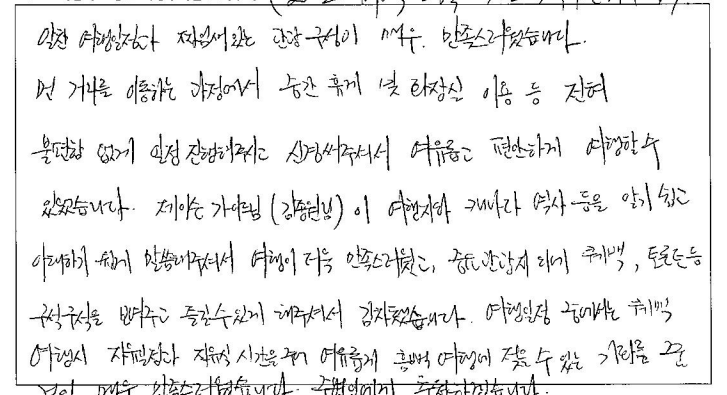 알찬 여행일정과 짜임새있는 관광구성이 매우 만족스러웠습니다.
먼 거리를 이동하는 과정에서 중간 휴게 및 화장실 이용 등 전혀
불편함 없게 일정 진행해주시고 신경써주셔서 여유롭고 편안하게 여행할 수
있었습니다. 제이슨 가이드님 (김종원님) 이 여행지와 캐나다 역사 등을 알기 쉽고
이해하기 쉽게 말씀해주셔서 여행이 더욱 만족스러웠고, 퀘백, 토론토 등
구석구석을 보여주고 즐길 수 있게 해주셔서 감사했습니다. 여행일정 중에서는 퀘백
여행시 자유일정과 자유식 시간을 주어 여유롭게 흠뻑 여행에 젖을 수 있는
매우 만족스러웠습니다. 추천하겠습니다.